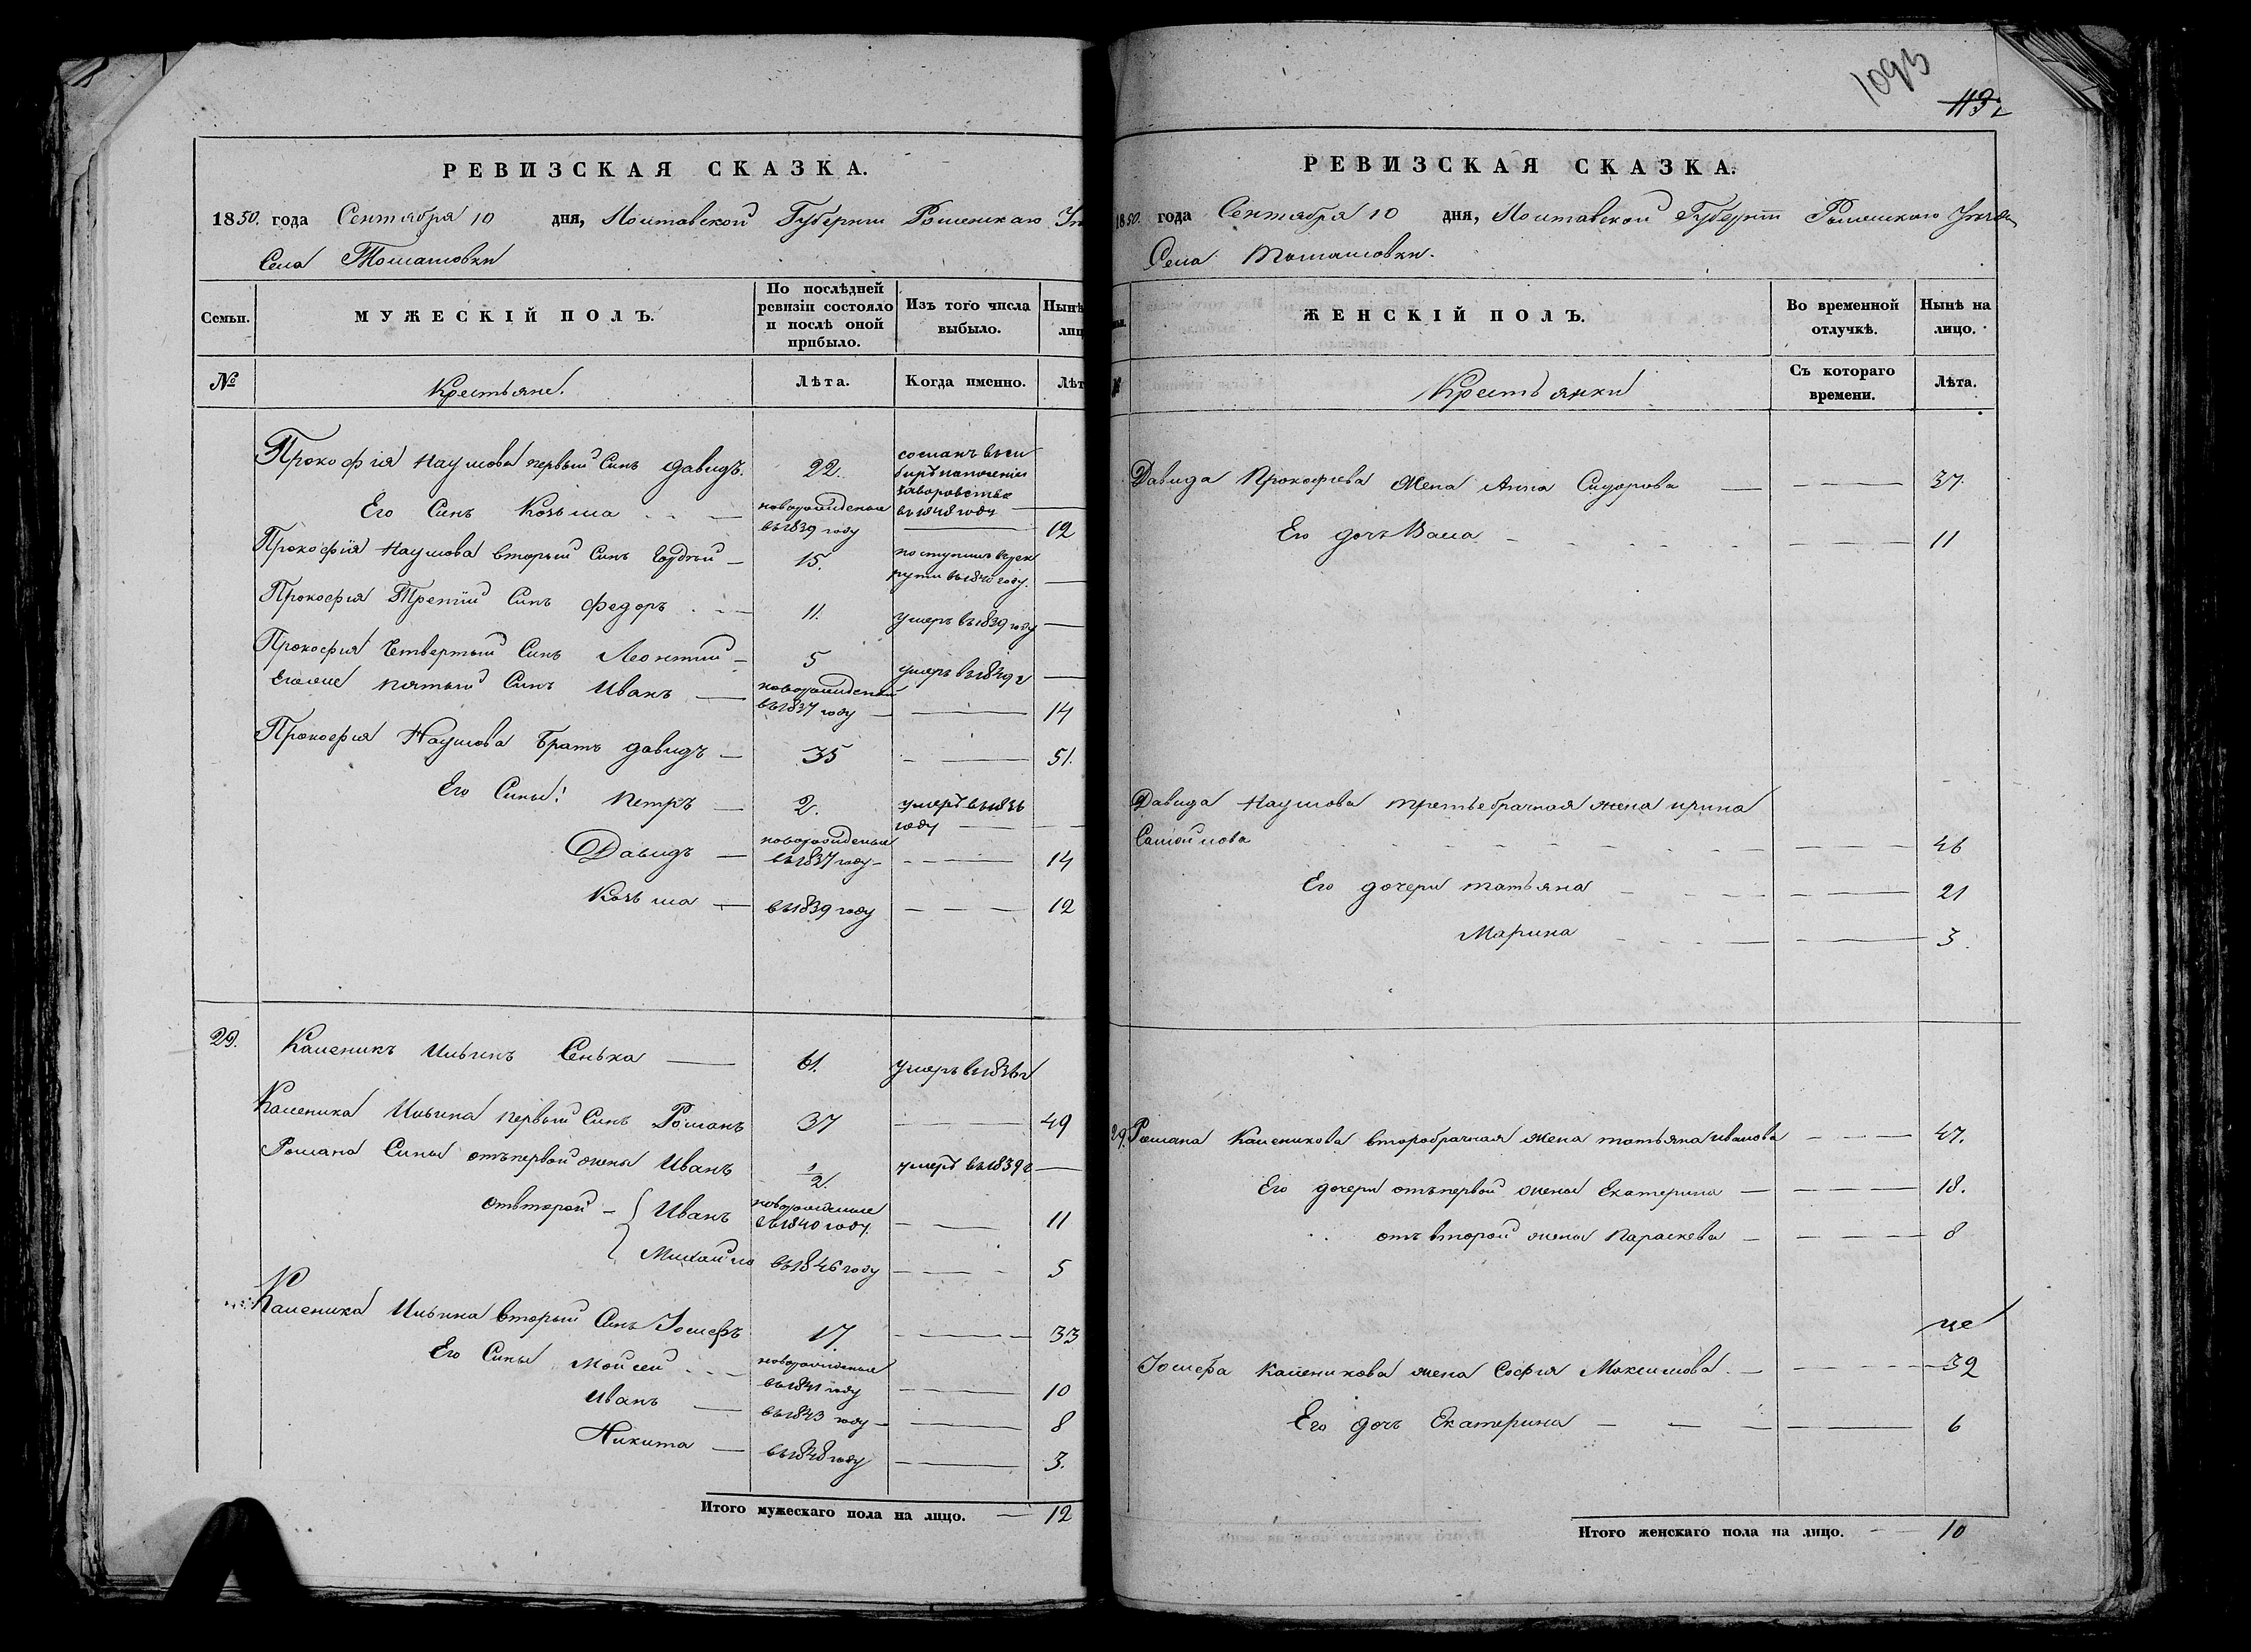 РЕВИЗСКАЯ СКАЗКА.
1850. года Сентября 10 дня, Полтавской Губернии Роменскаго
Села Томашовки
Семьи.
МУЖЕСКІЙ ПОЛЪ.
По послѣдней
ревизіи состояло
и послѣ оной
прибыло.
Изъ того числа
выбыло.
Нынѣ
лиц
№
Крестьяне.
Лѣта.
Когда именно.
Лѣт
Прокофія Наумова первый Синъ Давидъ. 22. сосланъ въ си
бирь
въ 1848 году
Его Синъ Козьма новорожденый
въ 1839 году 12
Прокофія Наумова вторый Синъ Гордѣй 15. поступилъ врек
руты въ 1840 году.
Прокофія Третій Синъ Федоръ 11. умеръ въ 1839 году
Прокофія Четвертый Синъ Леонтий 5 умеръ въ 1849 г
Еголже пятый Синъ Иванъ новорожденый
въ 1837 году 14
Прокофия Наумова Братъ Давидъ 35 51.
Его Сины: Петръ 2. умеръ въ 1836
году
Давидъ новорожденые
въ 1837 году 14
Козьма въ 1839 году 12
29. Каленикъ Ильинъ Сенька 61. умеръ въ 1836 г
Каленика Ильина первый Синъ Романъ 37 49
Романа Сины отъ первой жены Иванъ 1/2 умеръ въ 1839 г
отвторой Иванъ новорожденые
въ 1840 году. 11
Михайло въ 1846 году 5
Каленика Ильина вторый Синъ Іосифъ 17. 33
Его Сины Мойсей новорожденые
въ 1841 году 10
Иванъ въ 1843 году 8
Никита въ 1848 году 3.
Итого мужескаго пола на лицо. 12
1093
113
РЕВИЗСКАЯ СКАЗКА.
1850. года Сентября 10 дня, Полтавской Губерніи Роменскаго Уѣзда
Села Томашовки.
ЖЕНСКІЙ ПОЛЪ.
Во временной
отлучкѣ.
Нынѣ на
лицо.
№
Крестьянки
Съ котораго
времени.
Лѣта.
Давида Прокофіева жена Анна Сидорова 37.
Его дочъ Васа 11
Давида Наумова третьебрачная жена ирина
Самойлова 46
Его дочери татьяна 21
Марина 3.
29. Романа Каленикова второбрачная жена татьяна иванова 47.
Его дочери отъ первой жены Екатерина 18.
отъ второй жены Параскева 8
Іосифа Каленикова жена Софія Максимова. 32
Его дочъ Екатерина 6
Итого женскаго пола на лицо. 10